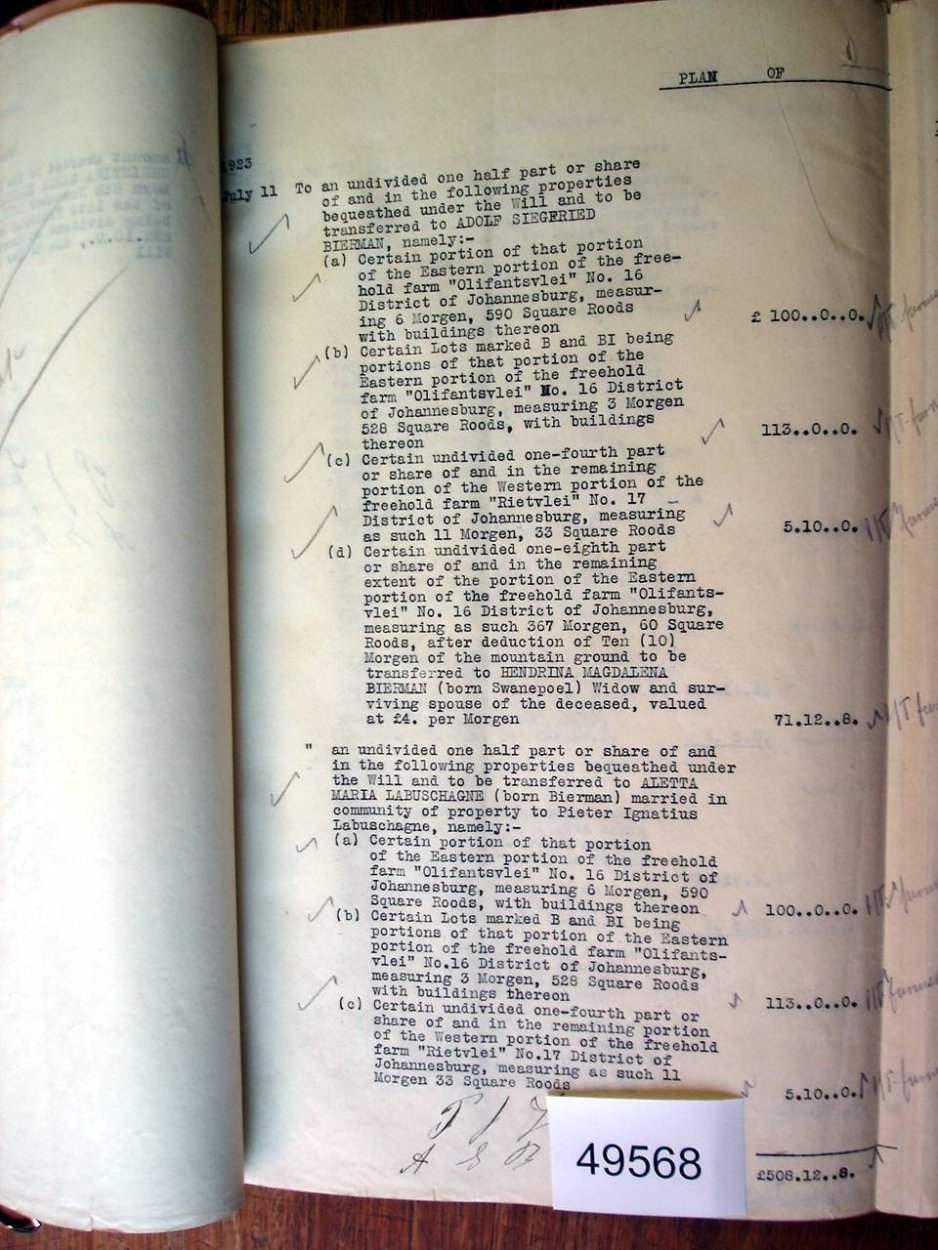 PLAN OF
1923
July 11 To an undivided one half part or share
of and in the following properties
bequeathed under the Will and to be
transferred to ADOLF SIEGFRIED
BIERMAN, namely:-
(a) Certain portion of that portion
of the Eastern portion of the free-
hold farm "Olifantsvlei" No. 16
District of Johannesburg, measur-
ing 6 Morgen, 590 Square Roods
with buildings thereon £ 100..0..0.
(b) Certain Lots marked B and BI being
portions of that portion of the
Eastern portion of the freehold
farm "Olifantsvlei" No. 16 District
of Johannesburg, measuring 3 Morgen
528 Square Roods, with buildings
thereon 113..0..0.
(c) Certain undivided one-fourth part
or share of and in the remaining
portion of the Western portion of the
freehold farm "Rietvlei" No. 17
District of Johannesburg, measuring
as such 11 Morgen, 33 Square Roods 5.10..0.
(d) Certain undivided one-eighth part
or share of and in the remaining
extent of the portion of the Eastern
portion of the freehold farm "Olifants-
vlei" No. 16 District of Johannesburg,
measuring as such 367 Morgen, 60 Square
Roods, after deduction of Ten (10)
Morgen of the mountain ground to be
transferred to HENDRINA MAGDALENA
BIERMAN (born Swanepoel) Widow and sur-
viving spouse of the deceased, valued
at £4. per Morgen 71.12..8.
" an undivided one half part or share of and
in the following properties bequeathed under
the Will and to be transferred to ALETTA
MARIA LABUSCHAGNE (born Bierman) married in
community of property to Pieter Ignatius
Labuschagne, namely:-
(a) Certain portion of that portion
of the Eastern portion of the freehold
farm "Olifantsvlei" No. 16 District of
Johannesburg, measuring 6 Morgen, 590
Square Roods, with buildings thereon 100..0..0.
(b) Certain Lots marked B and BI being
portions of that portion of the Eastern
portion of the freehold farm "Olifants-
vlei" No.16 District of Johannesburg,
measuring 3 Morgen, 528 Square Roods
with buildings thereon 113..0..0.
(c) Certain undivided one-fourth part or
share of and in the remaining portion
of the Western portion of the freehold
farm "Rietvlei" No.17 District of
Johannesburg, measuring as such 11
Morgen 33 Square Roods 5.10..0.
A S B
49568
£508.12..8.